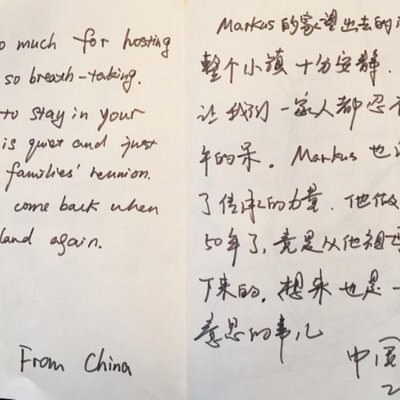 o much for hosting
so breath-taking.
to stay in your
is quiet and just
families' reunion.
come back when
land again.
From China
Markus的家望出去的
整个小镇十分安静.
让我们一家人都忍
午的呆。Markus也
了传承的力量.他做
50年了,竟是从他祖
下来的.想来也是一
意思的事儿
中国
2